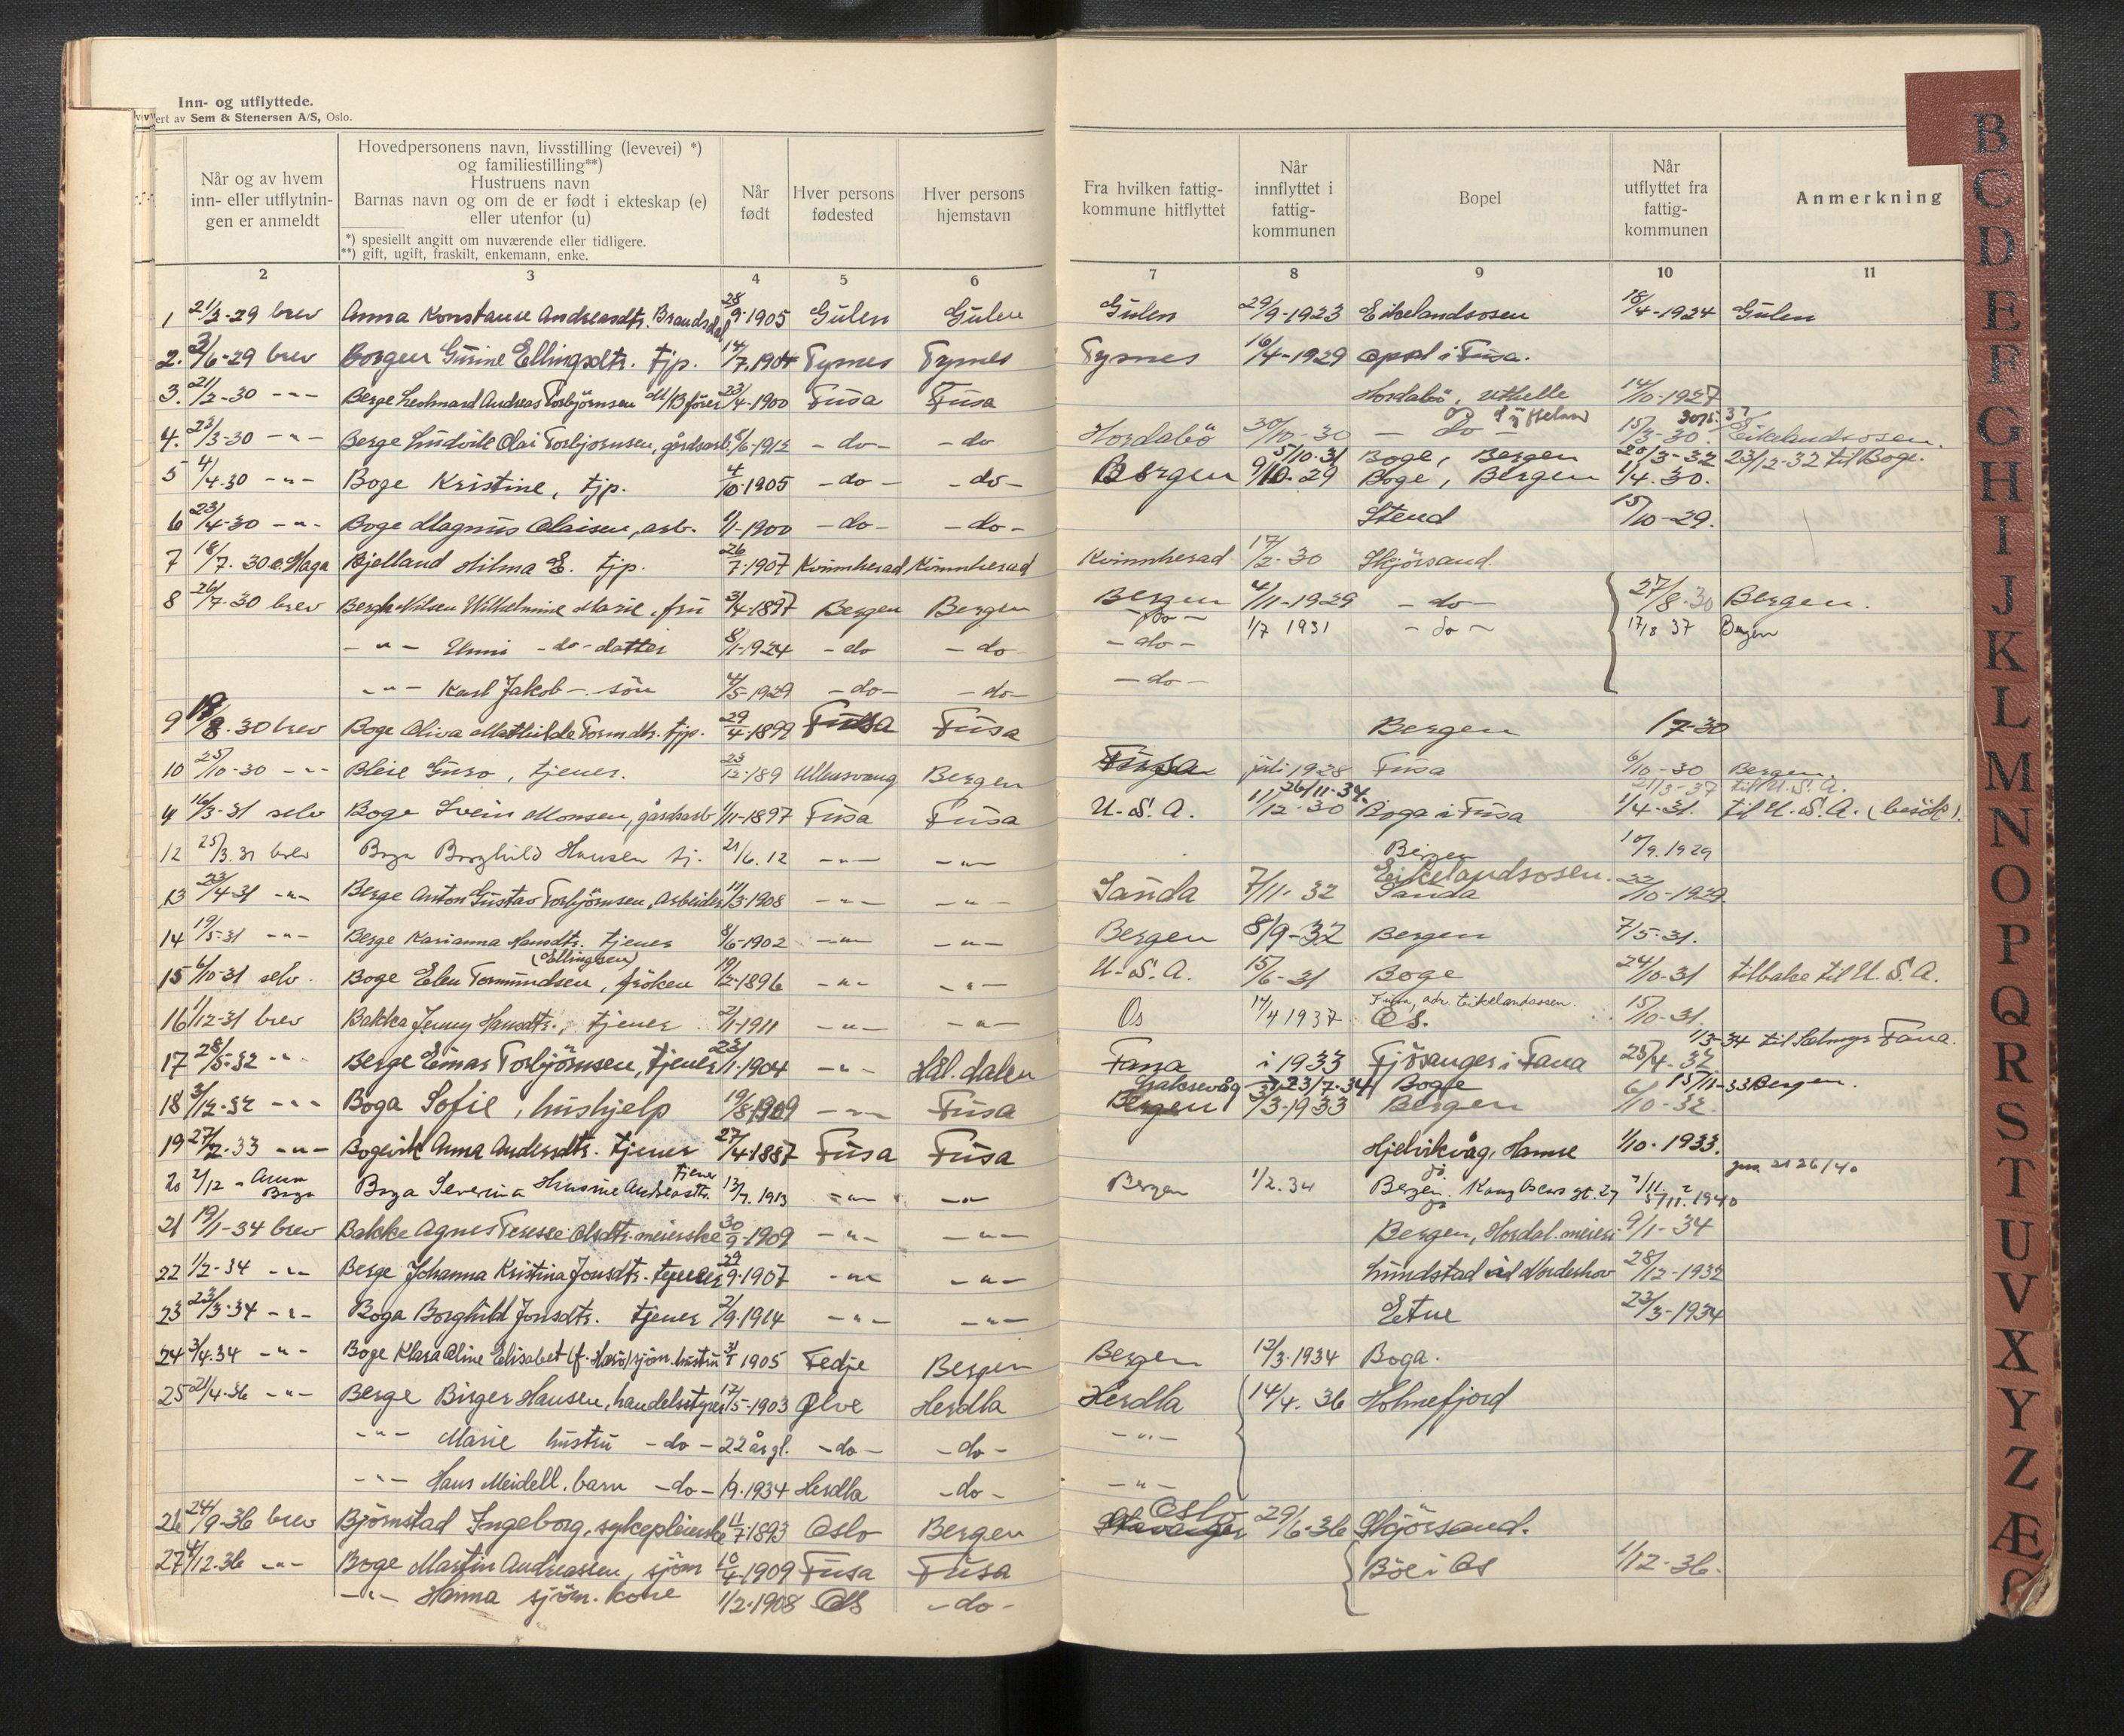 Inn- og utflyttede.
ert av Sem & Stenersen A/S, Oslo.
Når og av hvem
inn- eller utflytnin-
gen er anmeldt
Hovedpersonens navn, livsstilling (levevei) *)
og familiestilling**)
Hustruens navn
Barnas navn og om de er født i ekteskap (e)
eller utenfor (u)
*) spesiellt angitt om nuværende eller tidligere.
**) gift, ugift, fraskilt, enkemann, enke.
Når
født
Hver persons
fødested
Hver persons
hjemstavn
Fra hvilken fattig-
kommune hitflyttet
Når
innflyttet i
fattig-
kommunen
Bopel
Når
utflyttet fra
fattig-
kommunen
Anmerkning
2 3 4 5 6 7 8 9 10 11
1 21/3-29 brev Anna Konstanse Andreasdtr. Brandsdal 28/9-1905 Gulen Gulen Gulen 29/9-1923 Eikelandsosen 18/4-1924 Gulen
2. 3/6-29 brev Borgen Gurine Ellingsdtr. tjp. 14/7.1904 Tysnes Tysnes Tysnes 16/4-1929 i Fusa.
3. 21/2-30 -"- Berge Leohnard Andreas Torbjörnsen M/B förer 23/4-1900 Fusa Fusa Hordabö, Uthelle 14/10-1927
4. 23/3-30 -"- Berge Ludvik Olai Torbjornsen, gårdsarb. 8/6-1912 -do- -do Hordabö 30/10-30 -do- 15/3-30. Eikelandsosen.
5/10-31 Boge, Bergen 20/3-32 23/12-32 til Boge.
5 4/4.30 -"- Boge Kristine, tjp. 4/10-1905 -do- -do- Bergen 9/10-29 Boge, Bergen 1/4.30.
6 23/4-30 -"- Boge Magnus Olaisen, arb. 1/1-1900 -do- -do- Stend 15/10-29.
7 18/7.30 Haga Bjelland Hilma E. tjp. 26/7-1907 Kvinnherad Kvinnherad Kvinnherad 17/2-30 Skjörsand
8 26/7-30 brev Bergh-Nilsen Wilhelmine Marie, fru 3/4-1897 Bergen Bergen Bergen 4/11-1929 -do- 27/8-30 Bergen.
-do- 1/7 1931 -do- 17/8 37 Bergen
-"- Unni -do- datter 8/1-1924 -do -do- -do-
-"- Karl Jakob - sön 4/5-1929 -do- -do- -do-
9 18/8.30 brev Boge Oliva Mathilde Tormdtr. tjp. 29/4-1899 Fusa Fusa Bergen 1/7-30
10 25/10-30 -"- Bleie Guro, tjener. 23/12-189 Ullensvang Bergen Fusa juli 1928 Fusa 6/10-30 Bergen.
26/11-34. 21/3-37 til U.S.A.
11 16/3-31 selv Boge Svein Monsen, gårdsarb 1/11-1897 Fusa Fusa U.S.A. 11/12-30 Boga i Fusa 1/4-31. til U.S.A. (besök).
12 25/3.31 brev Boga Borghild Hansen tj. 21/6.12 -"- -"- Bergen 10/9.1929
13 23/4-31 -"- Berge Anton Gustav Torbjörnsen, Arbeider 11/3-1908 -"- -"- Sanda 7/11-32 Eikelandsosen. Sanda 22/10-1929
14 19/5-31 -"- Berge Karianna Hansdtr. tjener 8/6-1902 -"- -"- Bergen 8/9-32 Bergen 7/5-31.
(Ellingsen)
15 6/10-31 selv. Boge Elen Tormundsen, fröken 19/2-1896 -"- -"- U.S.A. 15/6-31 Boge 24/10-31 tilbake til U.S.A.
16 1/12-31 brev Bakka Jenny Hansdtr., tjener 2/1-1911 -"- -"- Os 14/4 1937 Fusa, adr. Eikelandsosen. Os. 15/10-31.
1/3-34 til Fana.
17 28/5-32 -"- Berge Einar Torbjörnsen, tjener 23/1-1904 -"- Hål.dalen Fana i 1933 Fjösanger i Fana 25/4-32
Laksevåg 23/7-34 Boge 15/11-33 Bergen.
18 3/12-32 -"- Boga Sofie, hushjelp 19/8-1909 -"- Fusa Bergen 3/3-1933 Bergen 6/10-32.
19 27/2-33 -"- Bogevik Anna Andersdtr. tjener 27/4-1887 Fusa Fusa Hjelvikvåg, Hamre 1/10-1933.
20 2/12 - Anna Boga Boga Severina Husine Andreasdtr. tjener 13/7.1913 -"- -"- Bergen 1/2.34 Bergen. Kong Oscars gt. 27 5/11.1940
21 19/1-34 brev Bakke Agnes Terese Olsdtr. meierske 30/9-1909 -"- -"- Bergen, Hordal. meieri 9/1-34
22 1/2-34 -"- Berge Johanna Kristina Jonsdtr. tjener 29/9-1907 -"- -"- Lundstad Norderhov 28/12-1932
23 23/3-34 -"- Boga Borghild Jonsdtr. tjener 2/9-1914 -"- -"- Etne 23/3-1934
24 3/4.34 -"- Boge Klara Oline Elisabet sjöm. hustru 1905 Fedje Bergen Bergen 12/3-1934 Boga.
25 21/4-36 -"- Berge Birger Hansen, handelsstyrer 17/5-1903 Ølve Herdla Herdla 14/4.36 Holmefjord
-"- Marie hustru -do- 22 år gl. -do- -do- -"-
-"- Hans Meidell, barn -do- 1/9-1934 Herdla -do- -"-
26 24/9-36 brev Björnstad Ingeborg, sykepleierske 11/7-1893 Oslo Bergen Stavanger Oslo 29/6-36 Skjörsand.
27 4/12.36 -"- Boge Martin Andreassen, sjöm 10/4-1909 Fusa Fusa Böe i Os 1/12-36.
-"- Hanna sjöm. kone 1/2-1908 Os -do-
B
C
D
E
F
G
H
I
J
K
L
M
N
O
P
Q
R
S
T
U
V
X
Y
Z
Æ